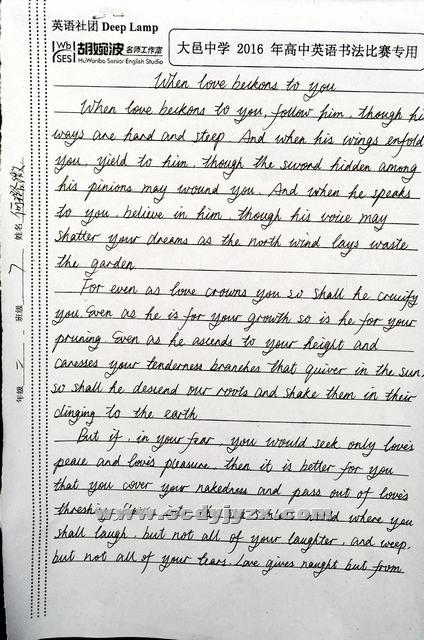 英语社团 Deep Lamp
Wb SES 胡婉波 名师工作室
HuWanbo Senior English Studio
大邑中学 2016 年高中英语书法比赛专用
When love beckons to you
When love beckons to you, follow him, though his
ways are hard and steep And when his wings enfold
you, yield to him, though the sword hidden among
his pinions may wound you. And when he speaks
to you, believe in him, though his voice may
shatter your dreams as the north wind lays waste
the garden
For even as love crowns you so shall he crucify
you. Even as he is for your growth so is he for your
pruning Even as he ascends to your height and
caresses your tenderness branches that quiver in the sun,
so shall he descend our roots and shake them in their
clinging to the earth
But if, in your fear, you would seek only love's
peace and love's pleasure, then it is better for you
that you cover your nakedness and pass out of love's
where you
shall laugh, but not all of your laughter, and weep,
but not all of your tears. Love gives naught but from
www.scdyjyzx.com
姓名
班级 7
年级 二